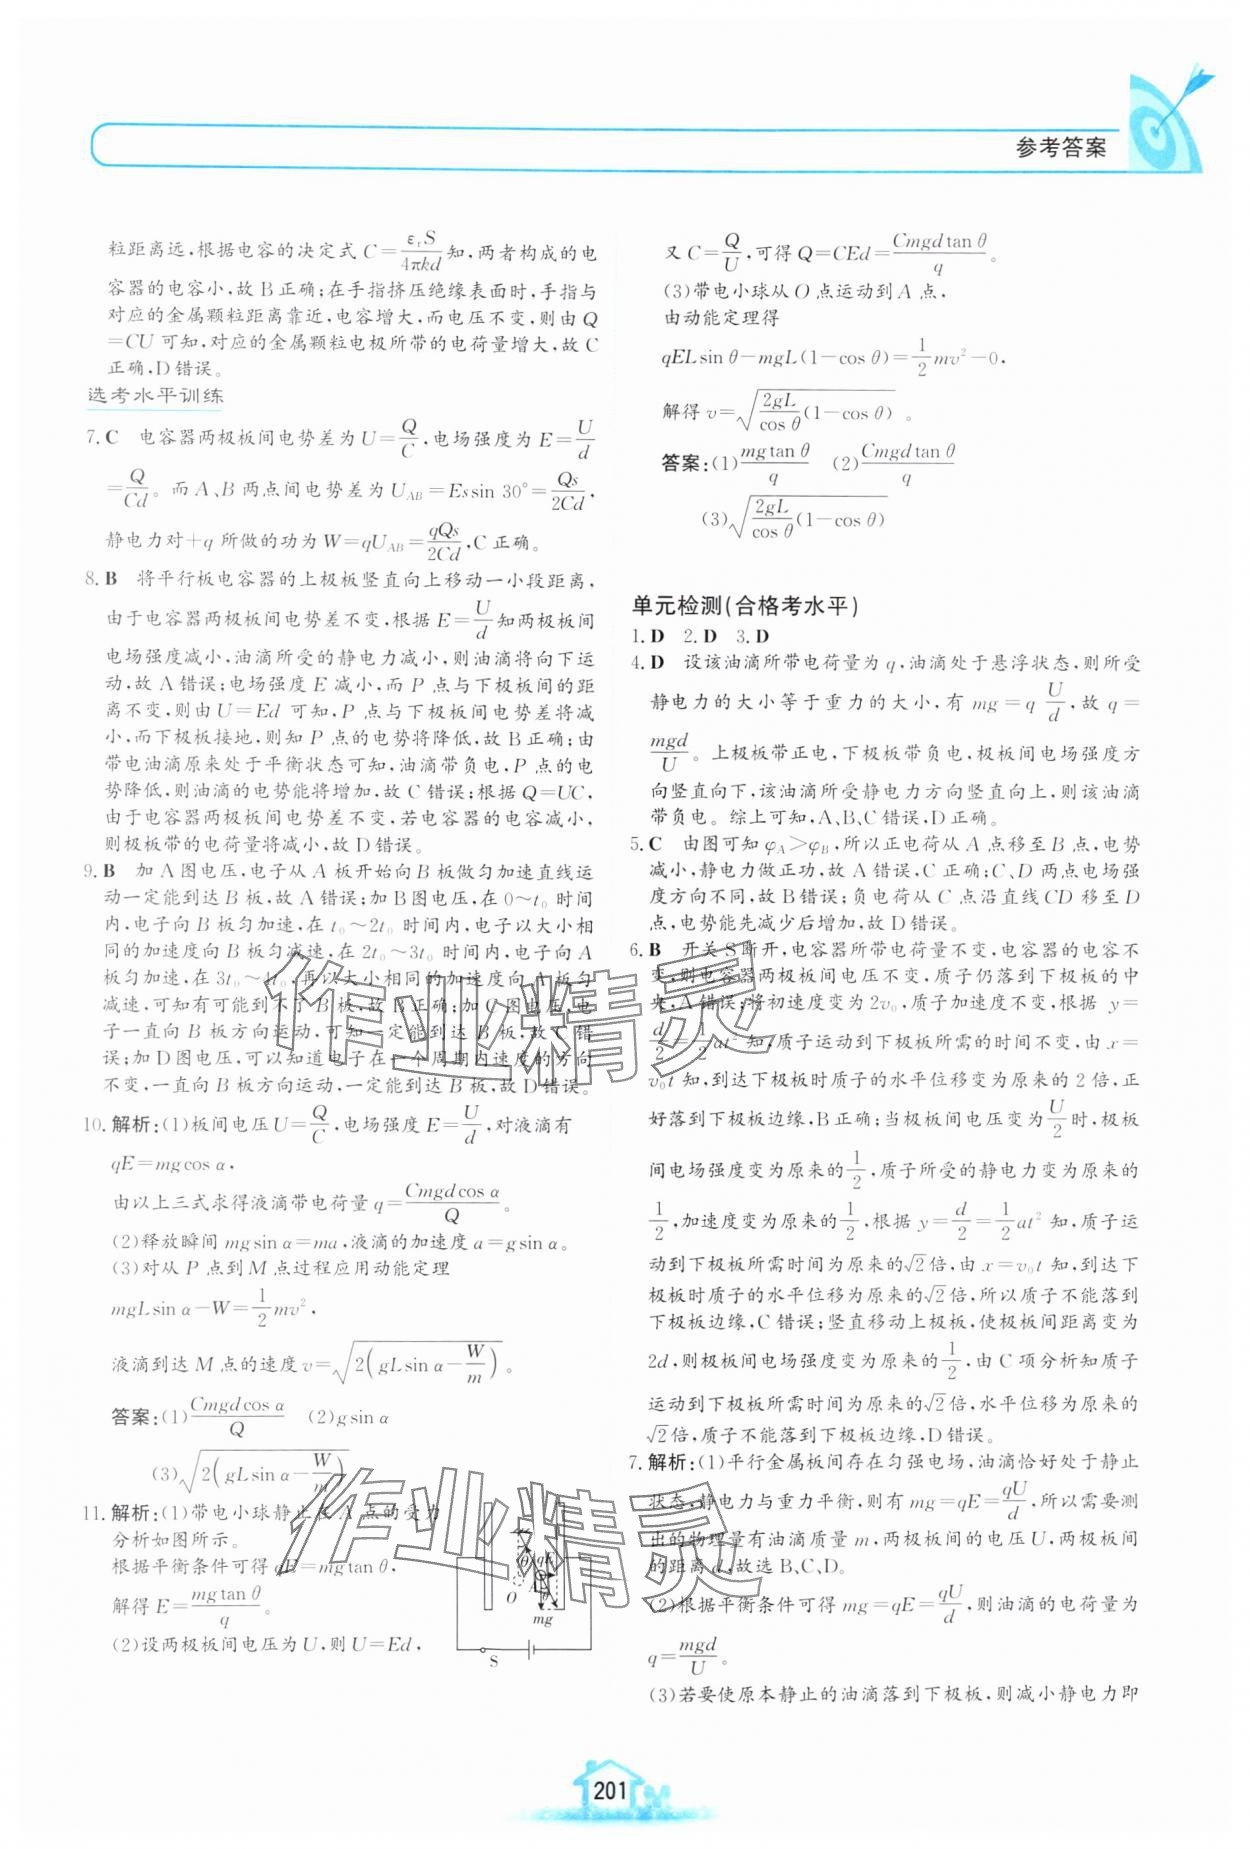 参考答案
粒距离远,根据电容的决定式 C=εᵣS/4πkd 知,两者构成的电
容器的电容小,故 B 正确;在手指挤压绝缘表面时,手指与
对应的金属颗粒距离靠近,电容增大,而电压不变,则由 Q
=CU 可知,对应的金属颗粒电极所带的电荷量增大,故 C
正确,D 错误。
选考水平训练
7. C 电容器两极板间电势差为 U=Q/C,电场强度为 E=U/d
=Q/Cd。而 A、B 两点间电势差为 U_AB=Es sin 30°=Qs/2Cd,
静电力对+q 所做的功为 W=qU_AB=qQs/2Cd,C 正确。
8. B 将平行板电容器的上极板竖直向上移动一小段距离,
由于电容器两极板间电势差不变,根据 E=U/d知两极板间
电场强度减小,油滴所受的静电力减小,则油滴将向下运
动,故 A 错误;电场强度 E 减小,而 P 点与下极板间的距
离不变,则由 U=Ed 可知,P 点与下极板间电势差将减
小,而下极板接地,则知 P 点的电势将降低,故 B 正确;由
带电油滴原来处于平衡状态可知,油滴带负电,P 点的电
势降低,则油滴的电势能将增加,故 C 错误;根据 Q=UC,
由于电容器两极板间电势差不变,若电容器的电容减小,
则极板带的电荷量将减小,故 D 错误。
9. B 加 A 图电压,电子从 A 板开始向 B 板做匀加速直线运
动一定能到达 B 板,故 A 错误;加 B 图电压,在 0～t₀ 时间
内,电子向 B 板匀加速,在 t₀～2t₀ 时间内,电子以大小相
同的加速度向 B 板匀减速,在 2t₀～3t₀ 时间内,电子向 A
板匀加速,在 3t₀～4t₀,再以大小相同的加速度向 A 板匀
减速,可知有可能到不了 B 板,故 B 正确;加 C 图电压,电
子一直向 B 板方向运动,可知一定能到达 B 板,故 C 错
误;加 D 图电压,可以知道电子在一个周期内速度的方向
不变,一直向 B 板方向运动,一定能到达 B 板,故 D 错误。
10. 解析:(1)板间电压 U=Q/C,电场强度 E=U/d,对液滴有
qE=mgcos α,
由以上三式求得液滴带电荷量 q=Cmgdcos α/Q。
(2)释放瞬间 mgsin α=ma,液滴的加速度 a=gsin α。
(3)对从 P 点到 M 点过程应用动能定理
mgLsin α-W=1/2mv²,
液滴到达 M 点的速度 v=√2(gLsin α-W/m)。
答案:(1)Cmgdcos α/Q (2)gsin α
(3)√2(gLsin α-W/m)
11. 解析:(1)带电小球静止在 A 点的受力
分析如图所示。
根据平衡条件可得 qE=mgtan θ,
解得 E=mgtan θ/q。
(2)设两极板间电压为 U,则 U=Ed,
θ
qE
O
mg
S
又 C=Q/U,可得 Q=CEd=Cmgdtan θ/q。
(3)带电小球从 O 点运动到 A 点,
由动能定理得
qELsin θ-mgL(1-cos θ)=1/2mv²-0,
解得 v=√2gL/cos θ(1-cos θ)。
答案:(1)mgtan θ/q (2)Cmgdtan θ/q
(3)√2gL/cos θ(1-cos θ)
单元检测(合格考水平)
1. D 2. D 3. D
4. D 设该油滴所带电荷量为 q,油滴处于悬浮状态,则所受
静电力的大小等于重力的大小,有 mg=q U/d,故 q=
mgd/U。上极板带正电,下极板带负电,极板间电场强度方
向竖直向下,该油滴所受静电力方向竖直向上,则该油滴
带负电。综上可知,A、B、C 错误,D 正确。
5. C 由图可知 φ_A>φ_B,所以正电荷从 A 点移至 B 点,电势
减小,静电力做正功,故 A 错误,C 正确;C、D 两点电场强
度方向不同,故 B 错误;负电荷从 C 点沿直线 CD 移至 D
点,电势能先减少后增加,故 D 错误。
6. B 开关 S 断开,电容器所带电荷量不变,电容器的电容不
变,则电容器两极板间电压不变,质子仍落到下极板的中
央,A 错误;将初速度变为 2v₀,质子加速度不变,根据 y=
d/2=1/2at² 知,质子运动到下极板所需的时间不变,由 x=
v₀t 知,到达下极板时质子的水平位移变为原来的 2 倍,正
好落到下极板边缘,B 正确;当极板间电压变为U/2时,极板
间电场强度变为原来的1/2,质子所受的静电力变为原来的
1/2,加速度变为原来的1/2,根据 y=d/2=1/2at² 知,质子运
动到下极板所需时间为原来的√2倍,由 x=v₀t 知,到达下
极板时质子的水平位移为原来的√2倍,所以质子不能落到
下极板边缘,C 错误;竖直移动上极板,使极板间距离变为
2d,则极板间电场强度变为原来的1/2,由 C 项分析知质子
运动到下极板所需时间为原来的√2倍,水平位移为原来的
√2倍,质子不能落到下极板边缘,D 错误。
7. 解析:(1)平行金属板间存在匀强电场,油滴恰好处于静止
状态,静电力与重力平衡,则有 mg=qE=qU/d,所以需要测
出的物理量有油滴质量 m,两极板间的电压 U,两极板间
的距离 d,故选 B、C、D。
(2)根据平衡条件可得 mg=qE=qU/d,则油滴的电荷量为
q=mgd/U。
(3)若要使原本静止的油滴落到下极板,则减小静电力即
作业精灵
作业精灵
201